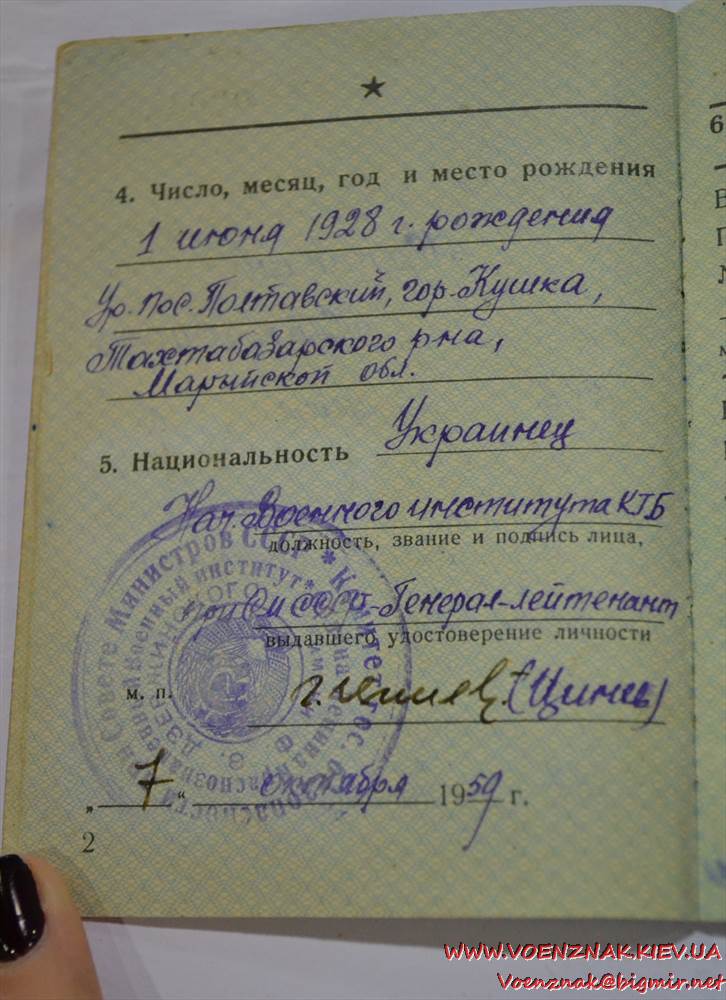 ★
4. Число, месяц, год и место рождения
1 июня 1928 г. рождения
Ур. пос. Полтавский, гор. Кушка,
Тахтабазарского р-на,
Марыйской обл.
5. Национальность Украинец
Нач. Военного института КГБ
должность, звание и подпись лица,
при СМ СССР – Генерал-лейтенант
выдавшего удостоверение личности
м. п. (Цинев)
„ 7 “ октября 1959 г.
2
Совете Министров СССР * Комитет гос.
Военный институт
6
WWW.VOENZNAK.KIEV.UA
Voenznak@bigmir.net